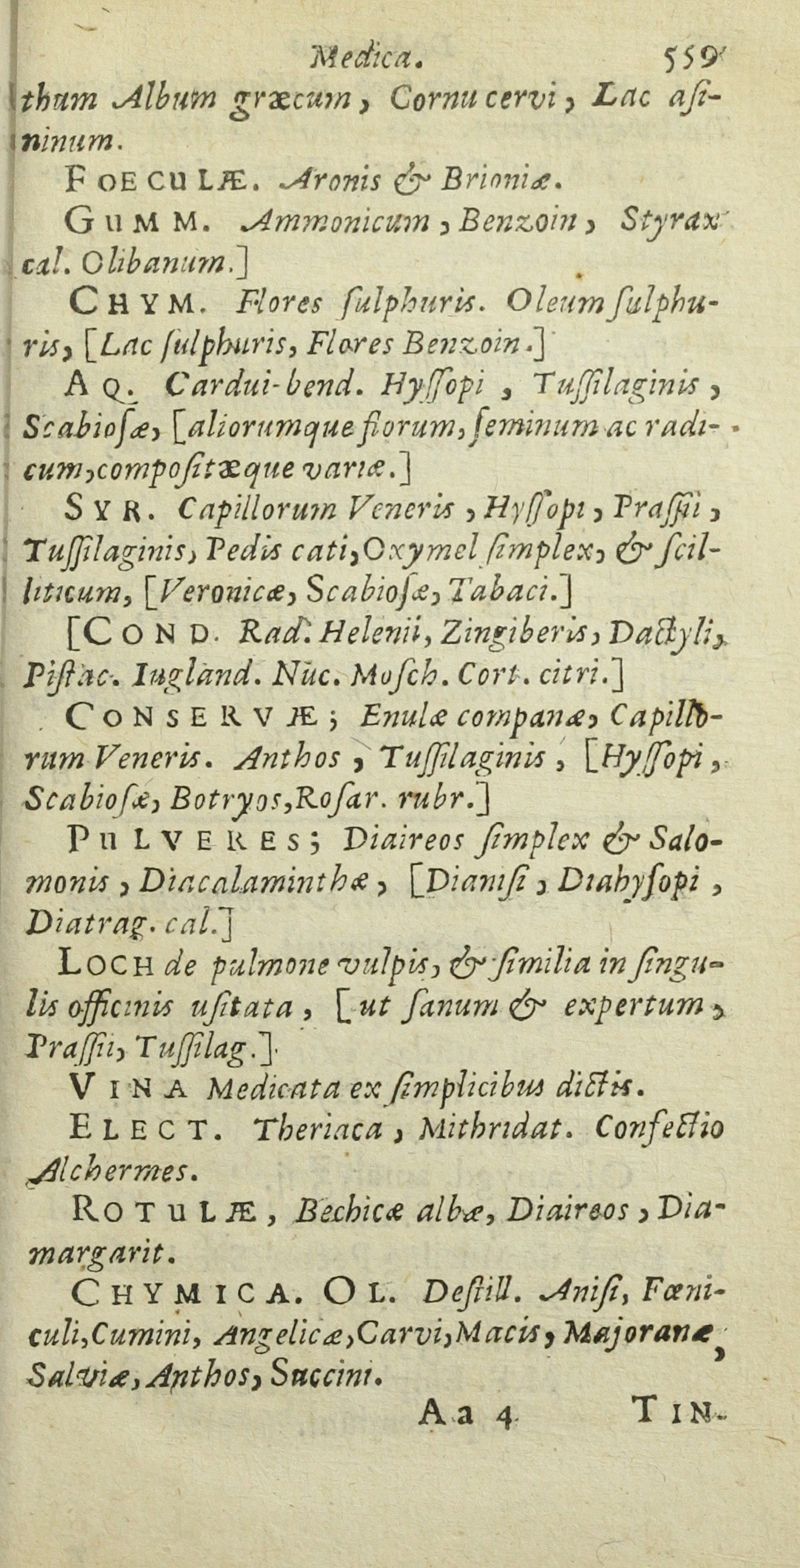 Medica. 559
thum Album græcum, Cornu cervi, Lac asi-
ninum.
FOECULÆ. Aronis & Brioniæ.
GUMM. Ammonicum, Benzoin, Styrax
cal. Olibanum.]
CHYM. Flores sulphuris. Oleum sulphu-
ris, [Lac sulphuris, Flores Benzoin.]
AQ. Cardui-bend. Hyssopi, Tussilaginis,
Scabiosæ, [aliorumque florum, seminum ac radi-
cum, compositæque variæ.]
SYR. Capillorum Veneris, Hyssopi, Prassii,
Tussilaginis, Pedis cati, Oxymel simplex, & scil-
liticum, [Veronicæ, Scabiosæ, Tabaci.]
[COND. Rad. Helenii, Zingiberis, Dactyli,
Pistac. Iugland. Nuc. Mosch. Cort. citri.]
CONSERVÆ; Enulæ companæ, Capillo-
rum Veneris. Anthos, Tussilaginis, [Hyssopi,
Scabiosæ, Botryos, Rosar. rubr.]
PULVERES; Diaireos simplex & Salo-
monis, Diacalaminthæ, [Dianisi, Diahysopi,
Diatrag. cal.]
LOCH de pulmone vulpis, & similia in singu-
lis officinis usitata, [ut sanum & expertum,
Prassii, Tussilag.]
VINA Medicata ex simplicibus dictis.
ELECT. Theriaca, Mithridat. Confectio
Alchermes.
ROTULÆ, Bechicæ albæ, Diaireos, Dia-
margarit.
CHYMICA. OL. Destill. Anisi, Fœni-
culi, Cumini, Angelicæ, Carvi, Macis, Majoranæ,
Salviæ, Anthos, Succini.
Aa 4 TIN-